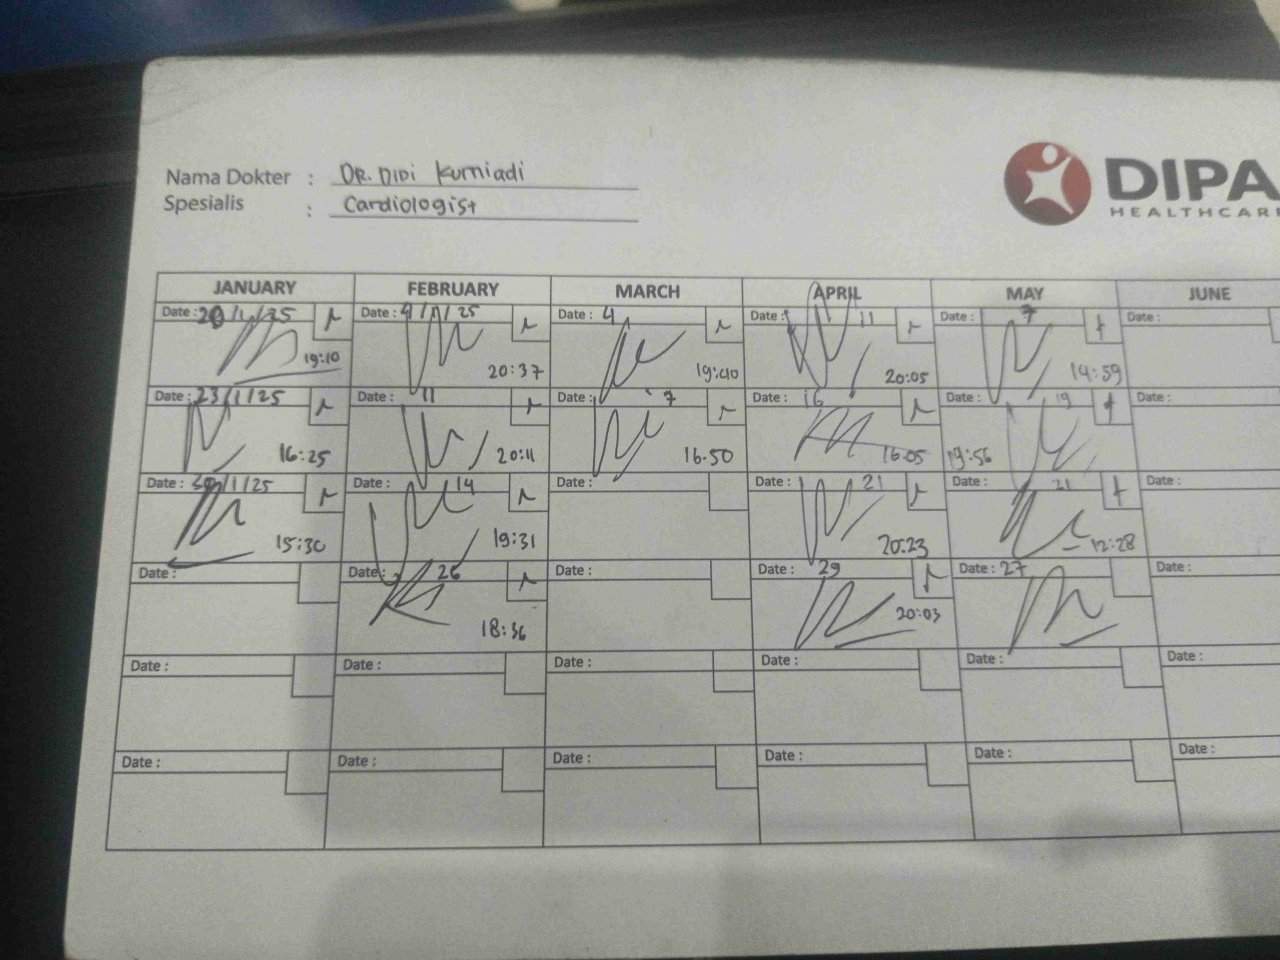 Nama Dokter : DR. DIDI Kurniadi
Spesialis : Cardiologist
DIPA
HEALTHCARE
JANUARY FEBRUARY MARCH APRIL MAY JUNE
Date : 20/1/25 Date : 4/ /25 Date : 4 Date : 11 Date : 7 Date :
19:10 20:37 19:40 20:05 14:59
Date : 23/1/25 Date : 11 Date : 7 Date : 16 Date : 19 Date :
16:25 20:11 16.50 16.05 19:56
Date : 30/1/25 Date : 14 Date : Date : 21 Date : 21 Date :
15:30 19:31 20:23 12:28
Date : Date : 26 Date : Date : 29 Date : 27 Date :
18:36 20:03
Date : Date : Date : Date : Date : Date :
Date : Date : Date : Date : Date : Date :